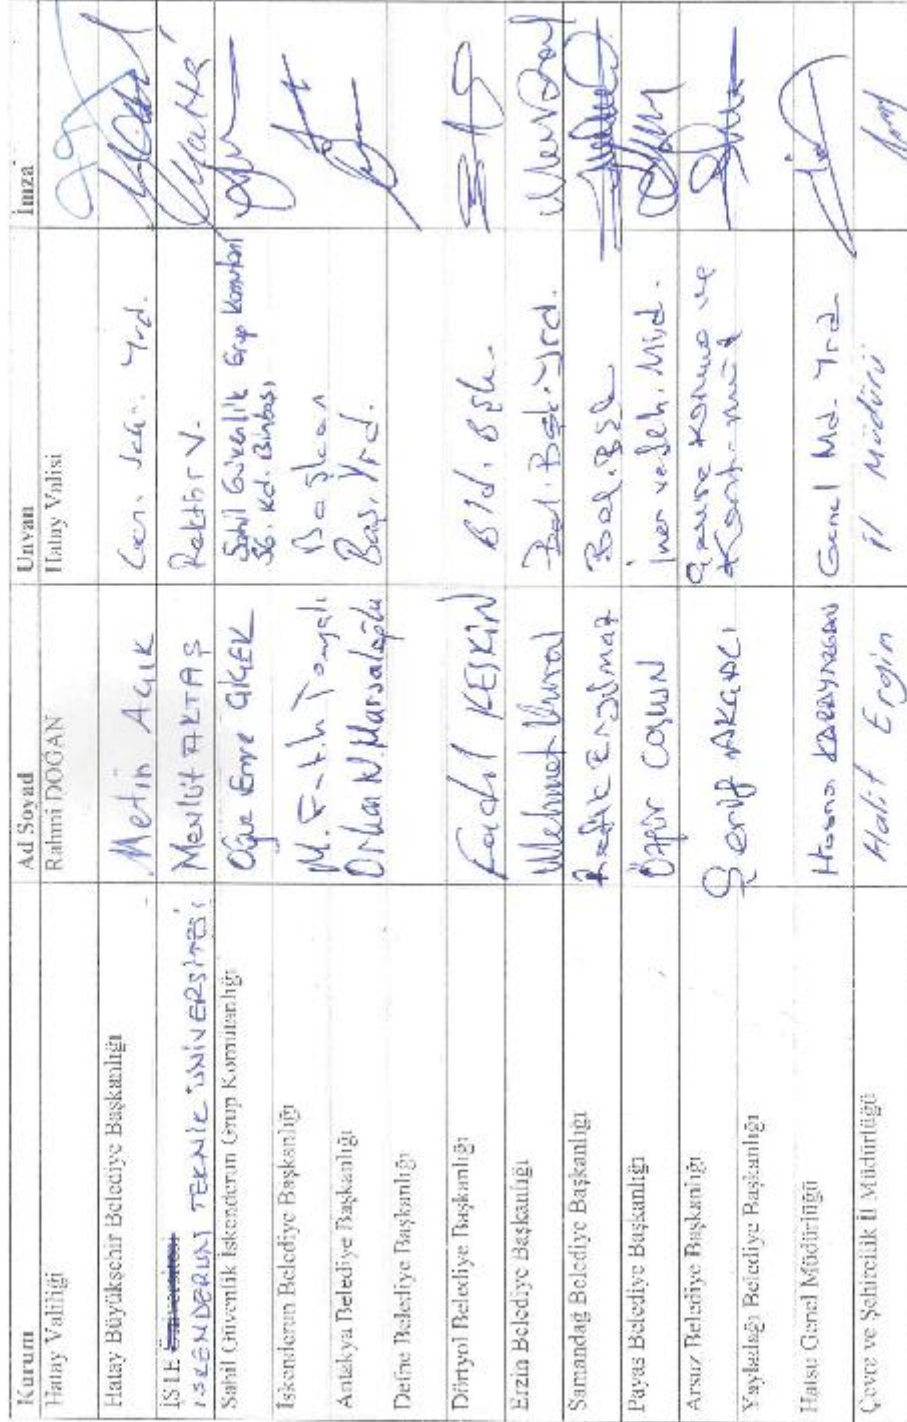 Kurum Ad Soyad Unvan İmza
Hatay Valiliği Rahmi DOĞAN Hatay Valisi
Hatay Büyükşehir Belediye Başkanlığı Metin AÇIK Gen. Sek. Yrd.
İSTE Üniversitesi
İSKENDERUN TEKNİK ÜNİVERSİTESİ Mevlüt AKTAŞ Rektör V.
Sahil Güvenlik İskenderun Grup Komutanlığı Oğuz Emre ÇİÇEK Sahil Güvenlik Grup Komutanı
SG. Kd. Binbaşı
İskenderun Belediye Başkanlığı M. Fatih Tosyalı Başkan
Antakya Belediye Başkanlığı Orhan N. Mansuroğlu Baş. Yrd.
Defne Belediye Başkanlığı
Dörtyol Belediye Başkanlığı Fadıl KESKİN Bld. Bşk.
Erzin Belediye Başkanlığı Mehmet Vural Bel. Bşk. Yrd.
Samandağ Belediye Başkanlığı Refik Eryılmaz Bel. Bşk
Payas Belediye Başkanlığı Özgür COŞKUN İmar ve Şeh. Müd.
Arsuz Belediye Başkanlığı Şerif AKÇACI Çevre Koruma ve
Kont. Müd
Yayladağı Belediye Başkanlığı
Hatsu Genel Müdürlüğü Hasan Genel Md. Yrd.
Çevre ve Şehircilik İl Müdürlüğü Halit Ergin İl Müdürü